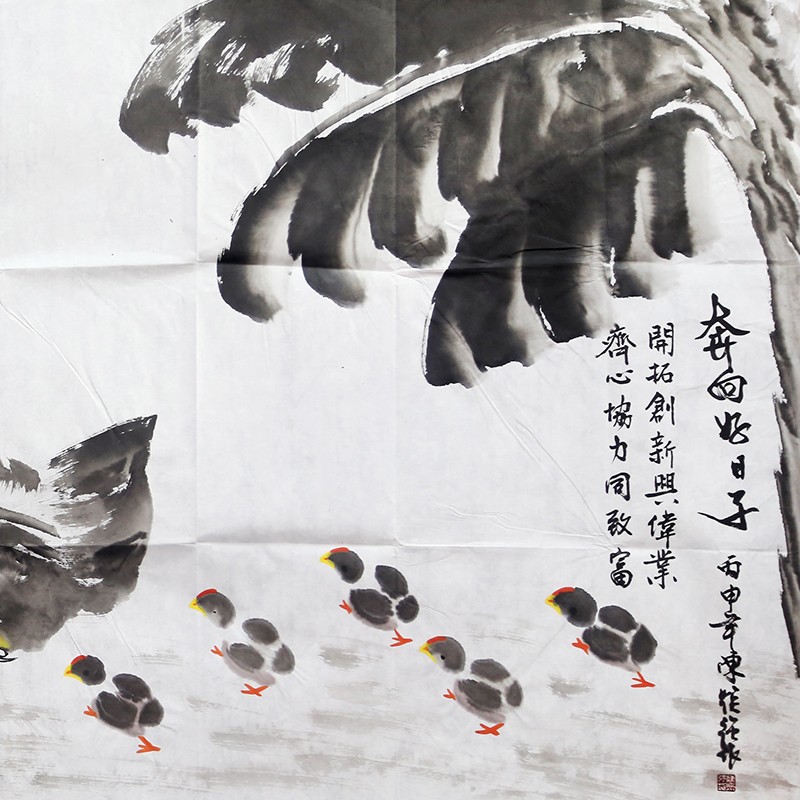 奔向好日子
開拓創新興偉業
齊心協力同致富
丙申年陳